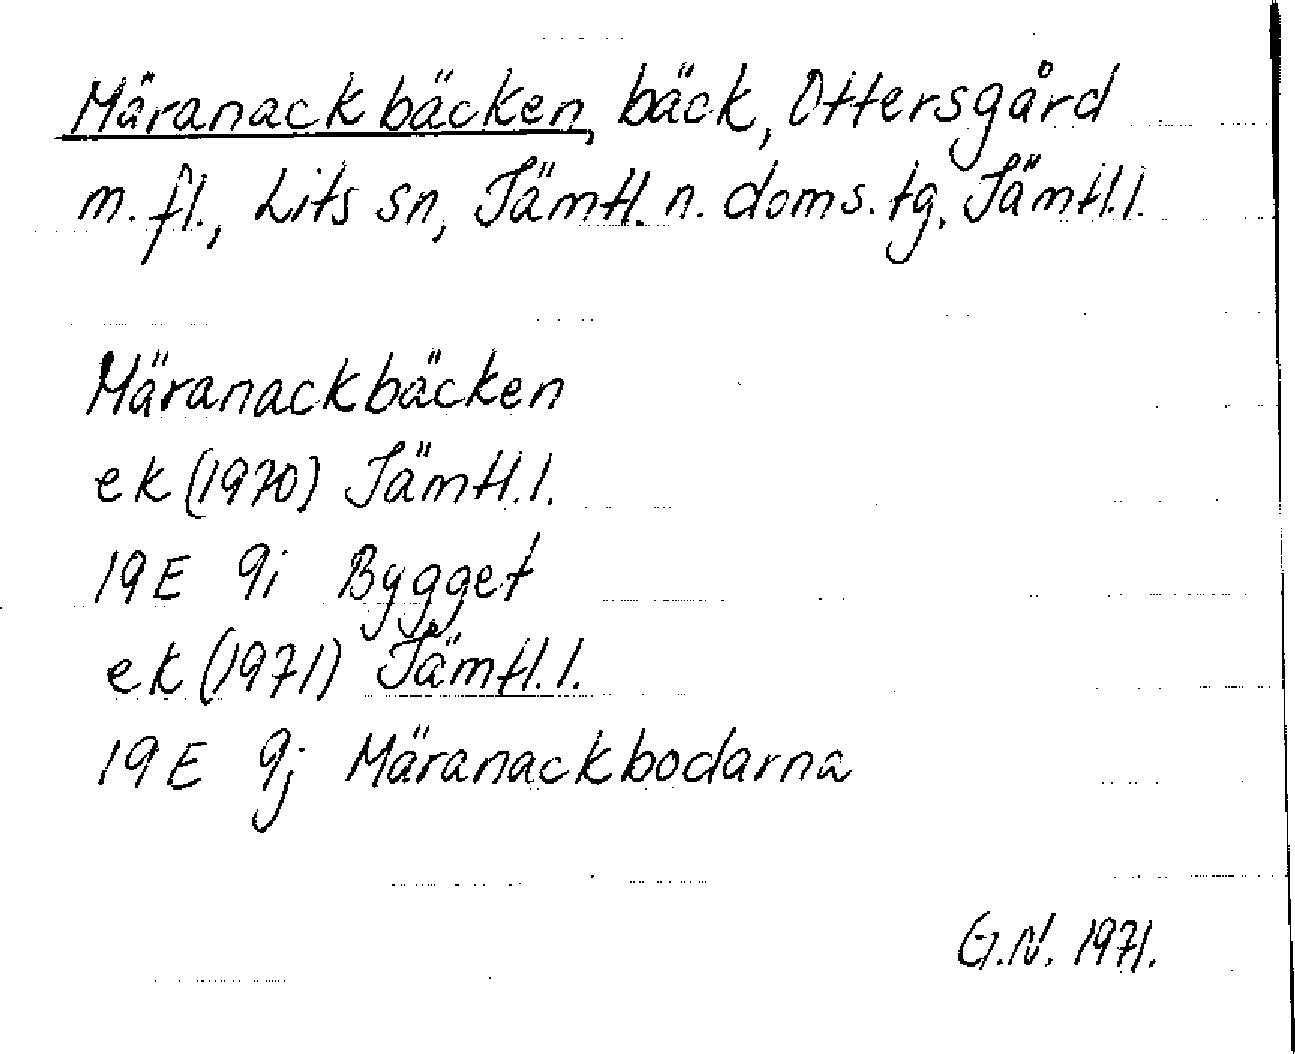 Märanackbäcken, bäck, Ottersgård
m. fl., Lits sn, Jämtl. n. doms. tg, Jämtl.l.
Märanackbäcken
ek (1970) Jämtl.l.
19 E 9i Bygget
ek (1971) Jämtl.l.
19 E 9j Märanackbodarna
G.N. 1971.